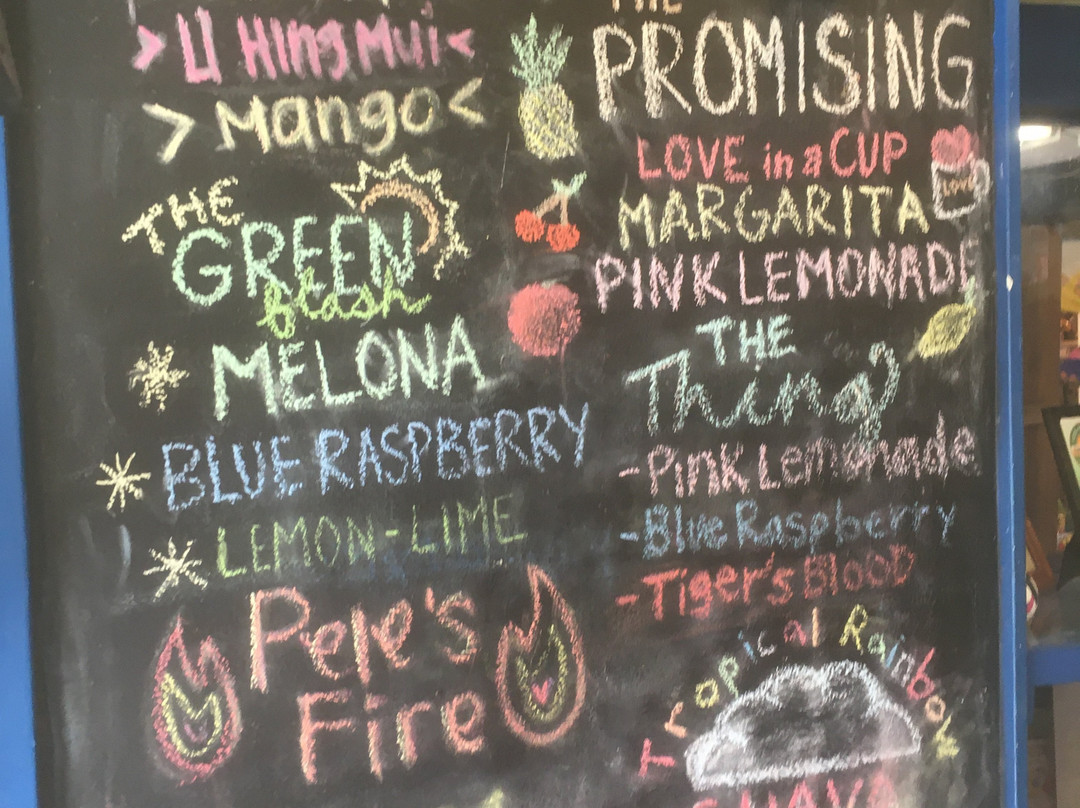 >Li Hing Mui<
>Mango<
THE
GREEN
flash
MELONA
BLUE RASPBERRY
LEMON-LIME
Pele's
Fire
THE
PROMISING
LOVE in a CUP
MARGARITA
PINK LEMONADE
THE
Thing
-Pink Lemonade
-Blue Raspberry
-Tiger's Blood
Tropical Rainbow
GUAVA